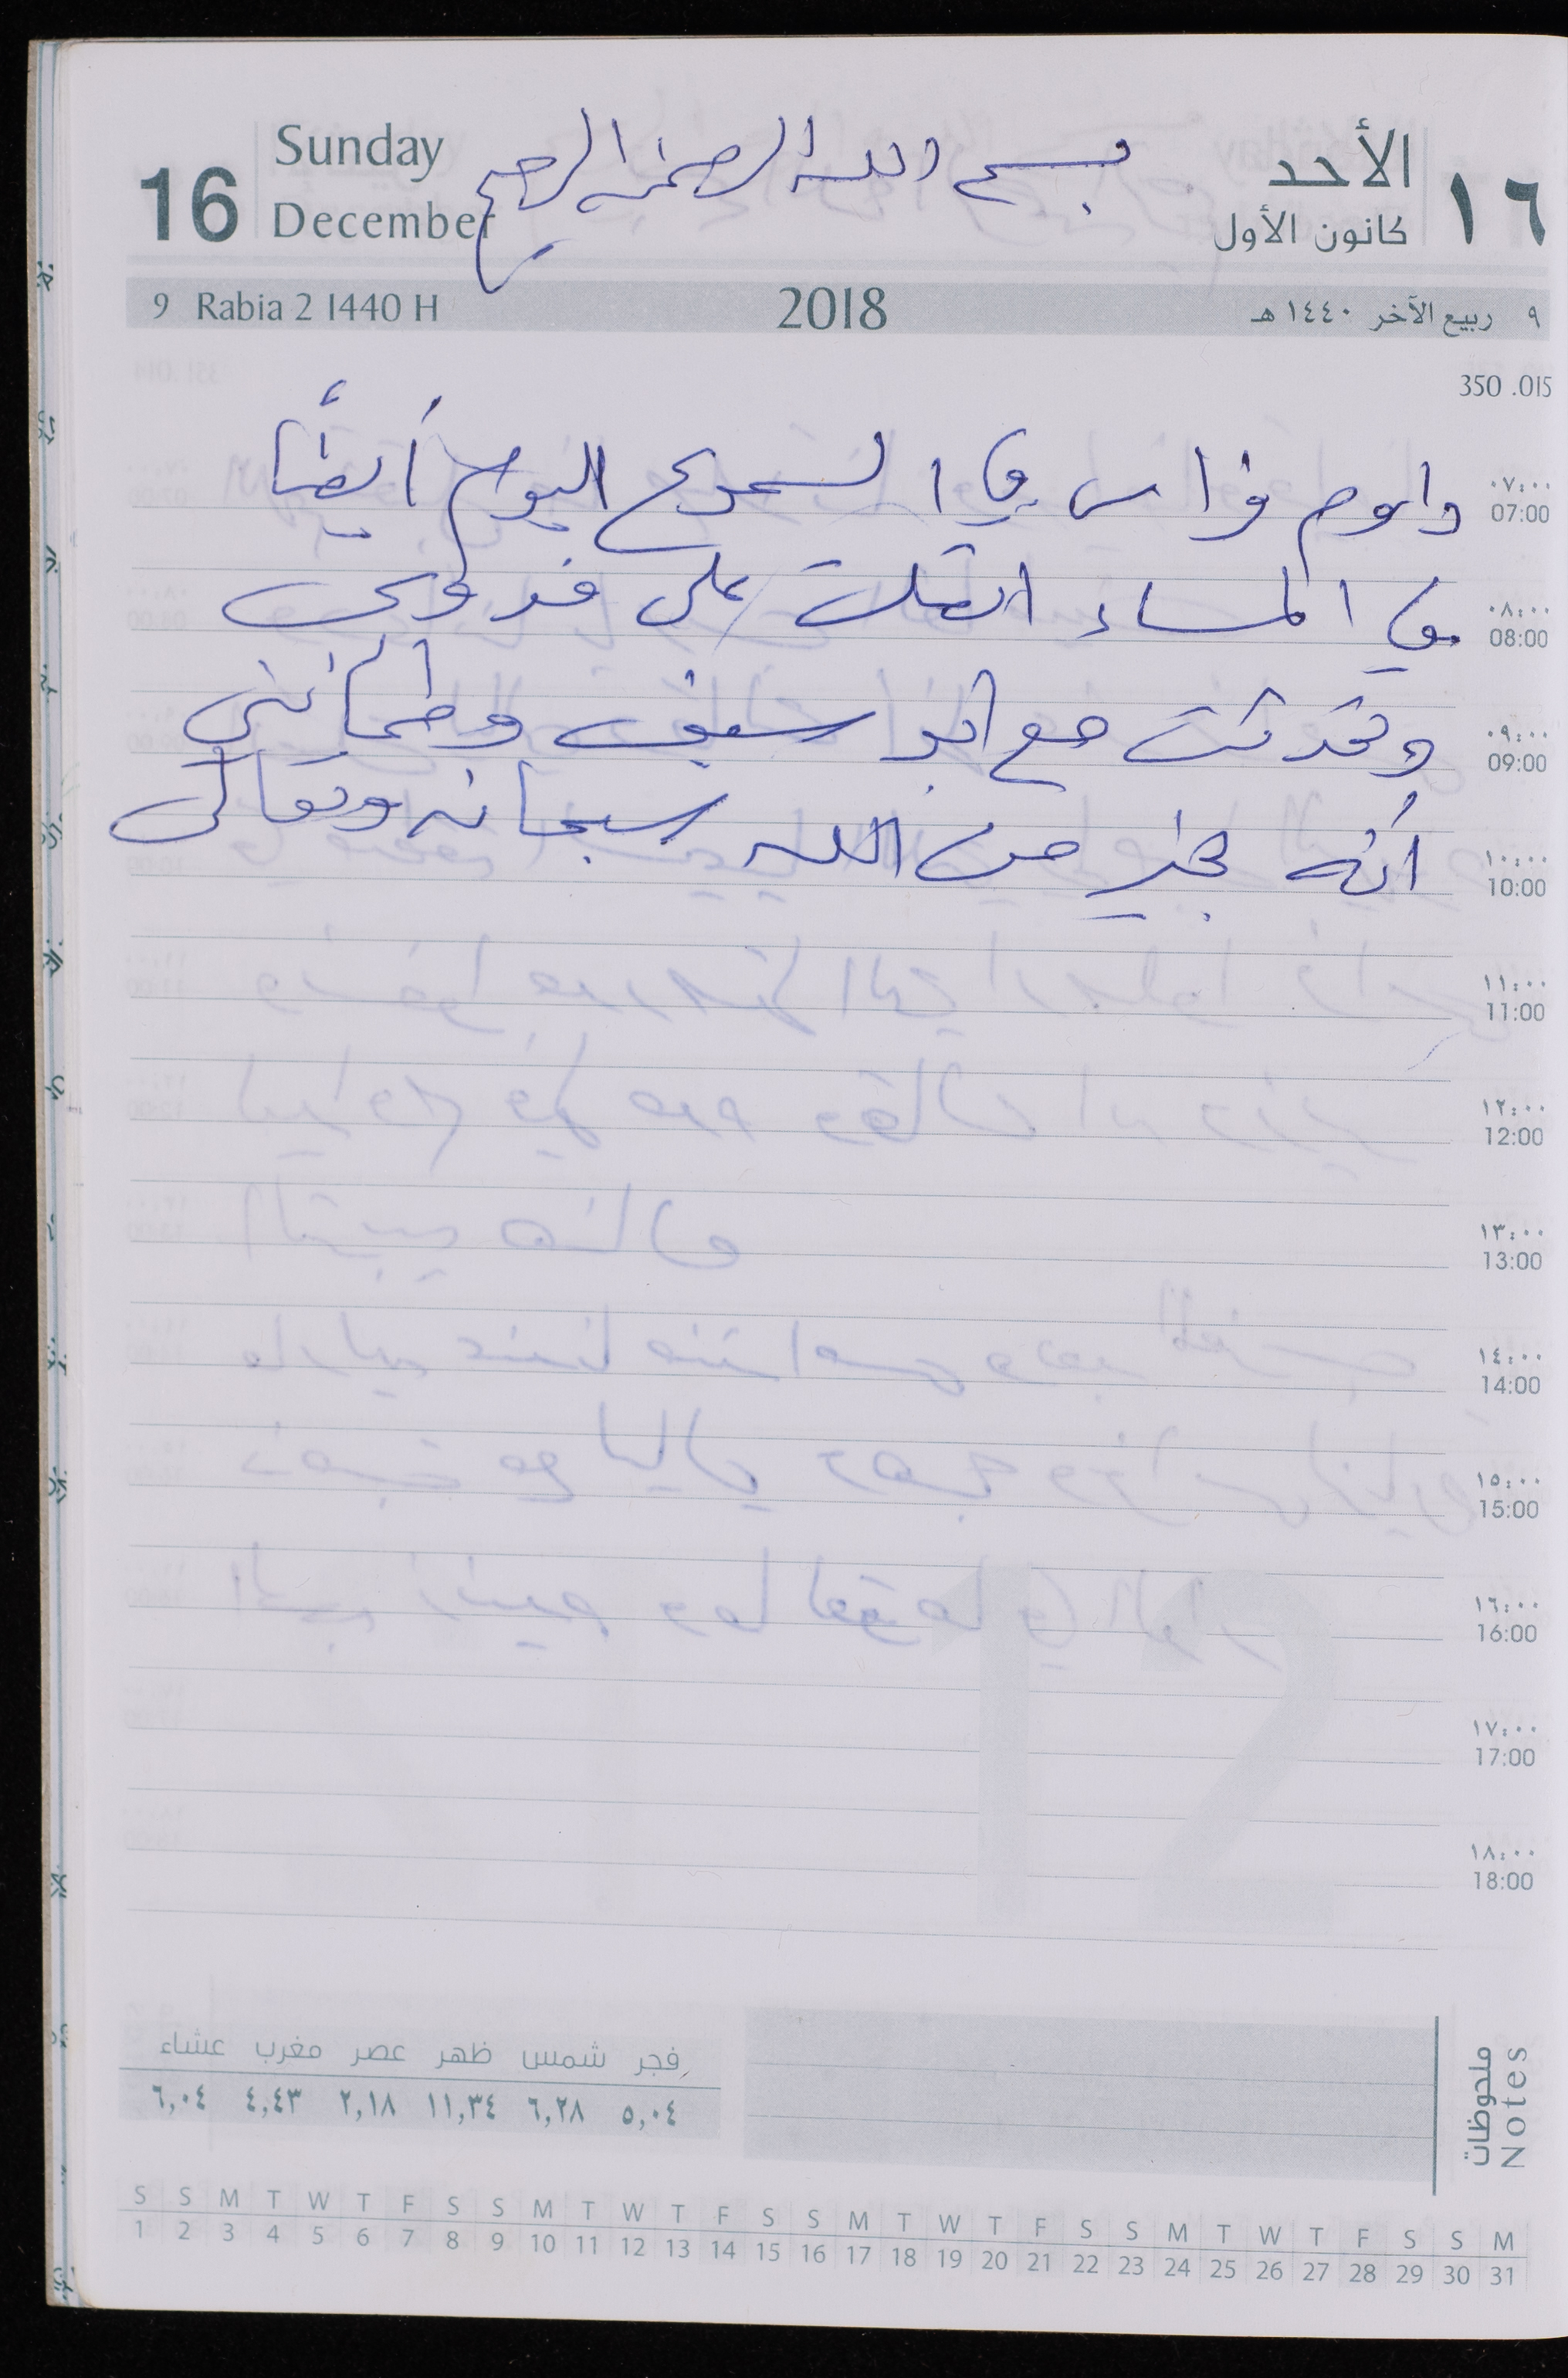 16 Sunday December
بسم الله الرحمن الرحيم
١٦ الأحد
كانون الأول
9 Rabia 2 1440 H 2018 ٩ ربيع الآخر ١٤٤٠ هـ
350 .015
داوم فراس في السمو ح اليوم أيضاً
في المساء اتصلت على فدوى
وتحدثت مع أبو سيف وطمأنني
أنه بخير من الله سبحانه وتعالى
٠٧:٠٠
07:00
٠٨:٠٠
08:00
٠٩:٠٠
09:00
١٠:٠٠
10:00
١١:٠٠
11:00
١٢:٠٠
12:00
١٣:٠٠
13:00
١٤:٠٠
14:00
١٥:٠٠
15:00
١٦:٠٠
16:00
١٧:٠٠
17:00
١٨:٠٠
18:00
فجر شمس ظهر عصر مغرب عشاء
٥,٠٤ ٦,٢٨ ١١,٣٤ ٢,١٨ ٤,٤٣ ٦,٠٤
ملحوظات
Notes
S S M T W T F S S M T W T F S S M T W T F S S M T W T F S S M
1 2 3 4 5 6 7 8 9 10 11 12 13 14 15 16 17 18 19 20 21 22 23 24 25 26 27 28 29 30 31